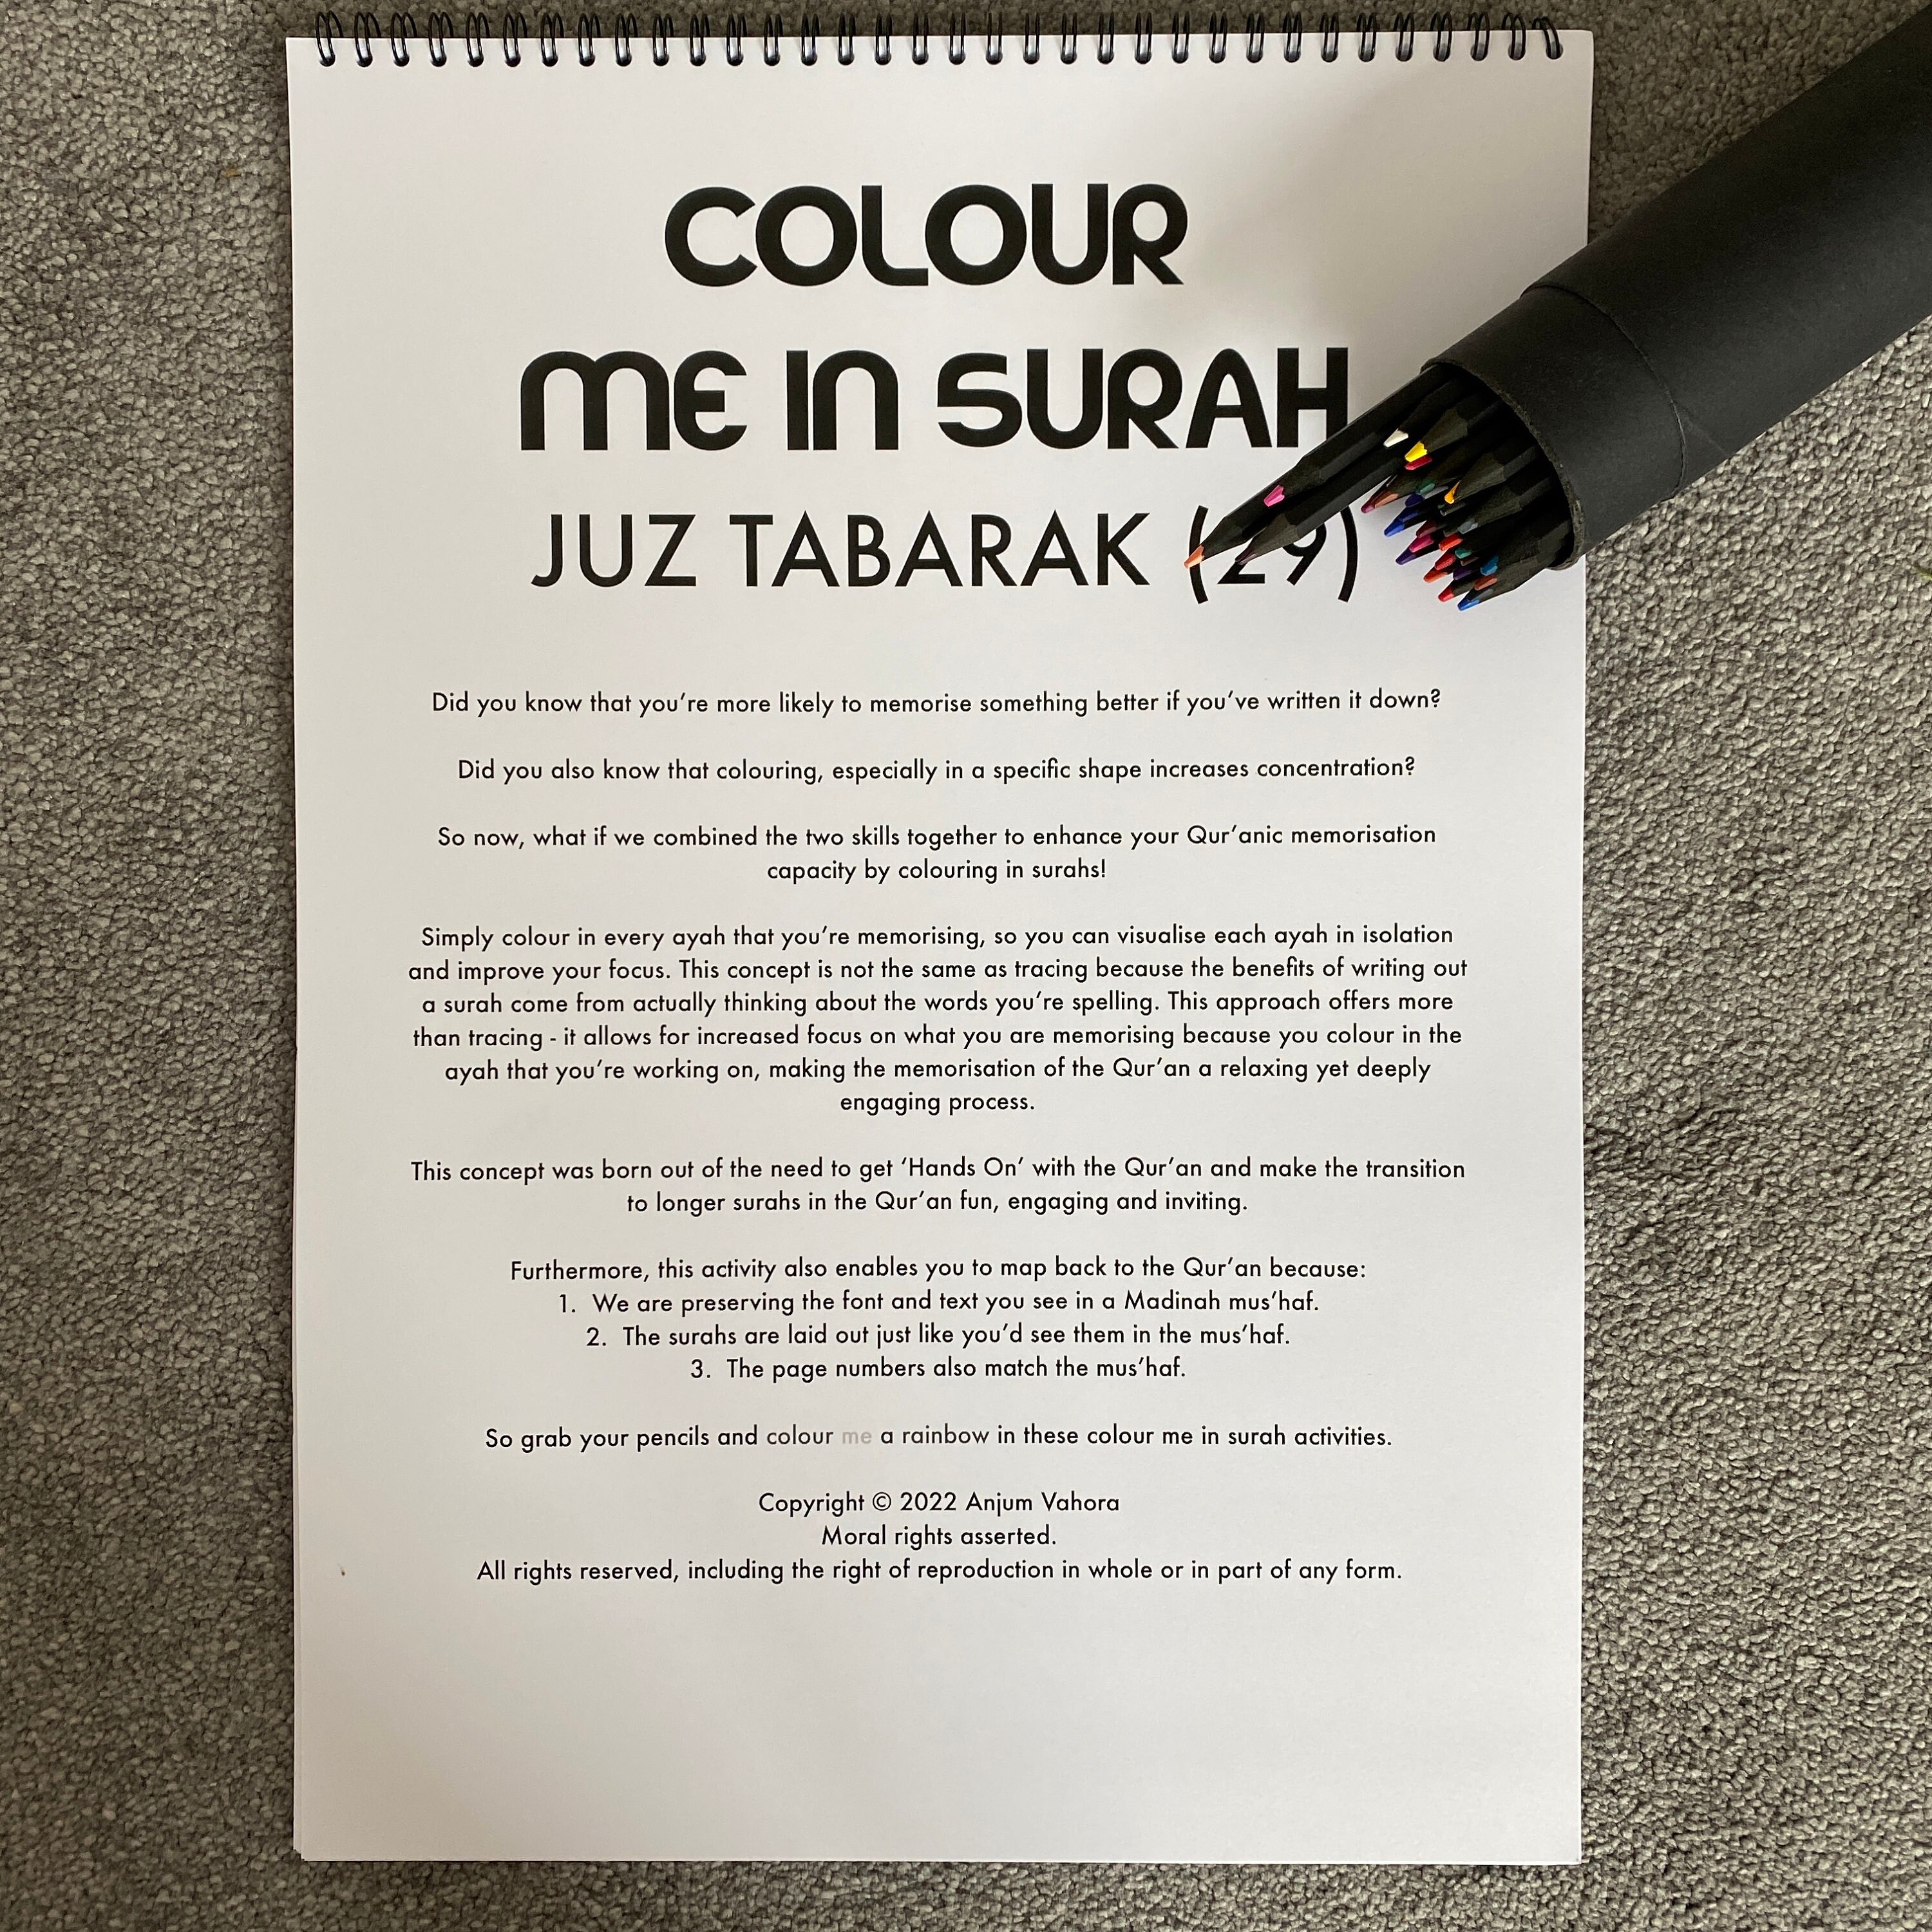 COLOUR
ME IN SURAH
JUZ TABARAK (29)
Did you know that you're more likely to memorise something better if you've written it down?
Did you also know that colouring, especially in a specific shape increases concentration?
So now, what if we combined the two skills together to enhance your Qur'anic memorisation
capacity by colouring in surahs!
Simply colour in every ayah that you're memorising, so you can visualise each ayah in isolation
and improve your focus. This concept is not the same as tracing because the benefits of writing out
a surah come from actually thinking about the words you're spelling. This approach offers more
than tracing - it allows for increased focus on what you are memorising because you colour in the
ayah that you're working on, making the memorisation of the Qur'an a relaxing yet deeply
engaging process.
This concept was born out of the need to get 'Hands On' with the Qur'an and make the transition
to longer surahs in the Qur'an fun, engaging and inviting.
Furthermore, this activity also enables you to map back to the Qur'an because:
1. We are preserving the font and text you see in a Madinah mus'haf.
2. The surahs are laid out just like you'd see them in the mus'haf.
3. The page numbers also match the mus'haf.
So grab your pencils and colour me a rainbow in these colour me in surah activities.
Copyright © 2022 Anjum Vahora
Moral rights asserted.
All rights reserved, including the right of reproduction in whole or in part of any form.